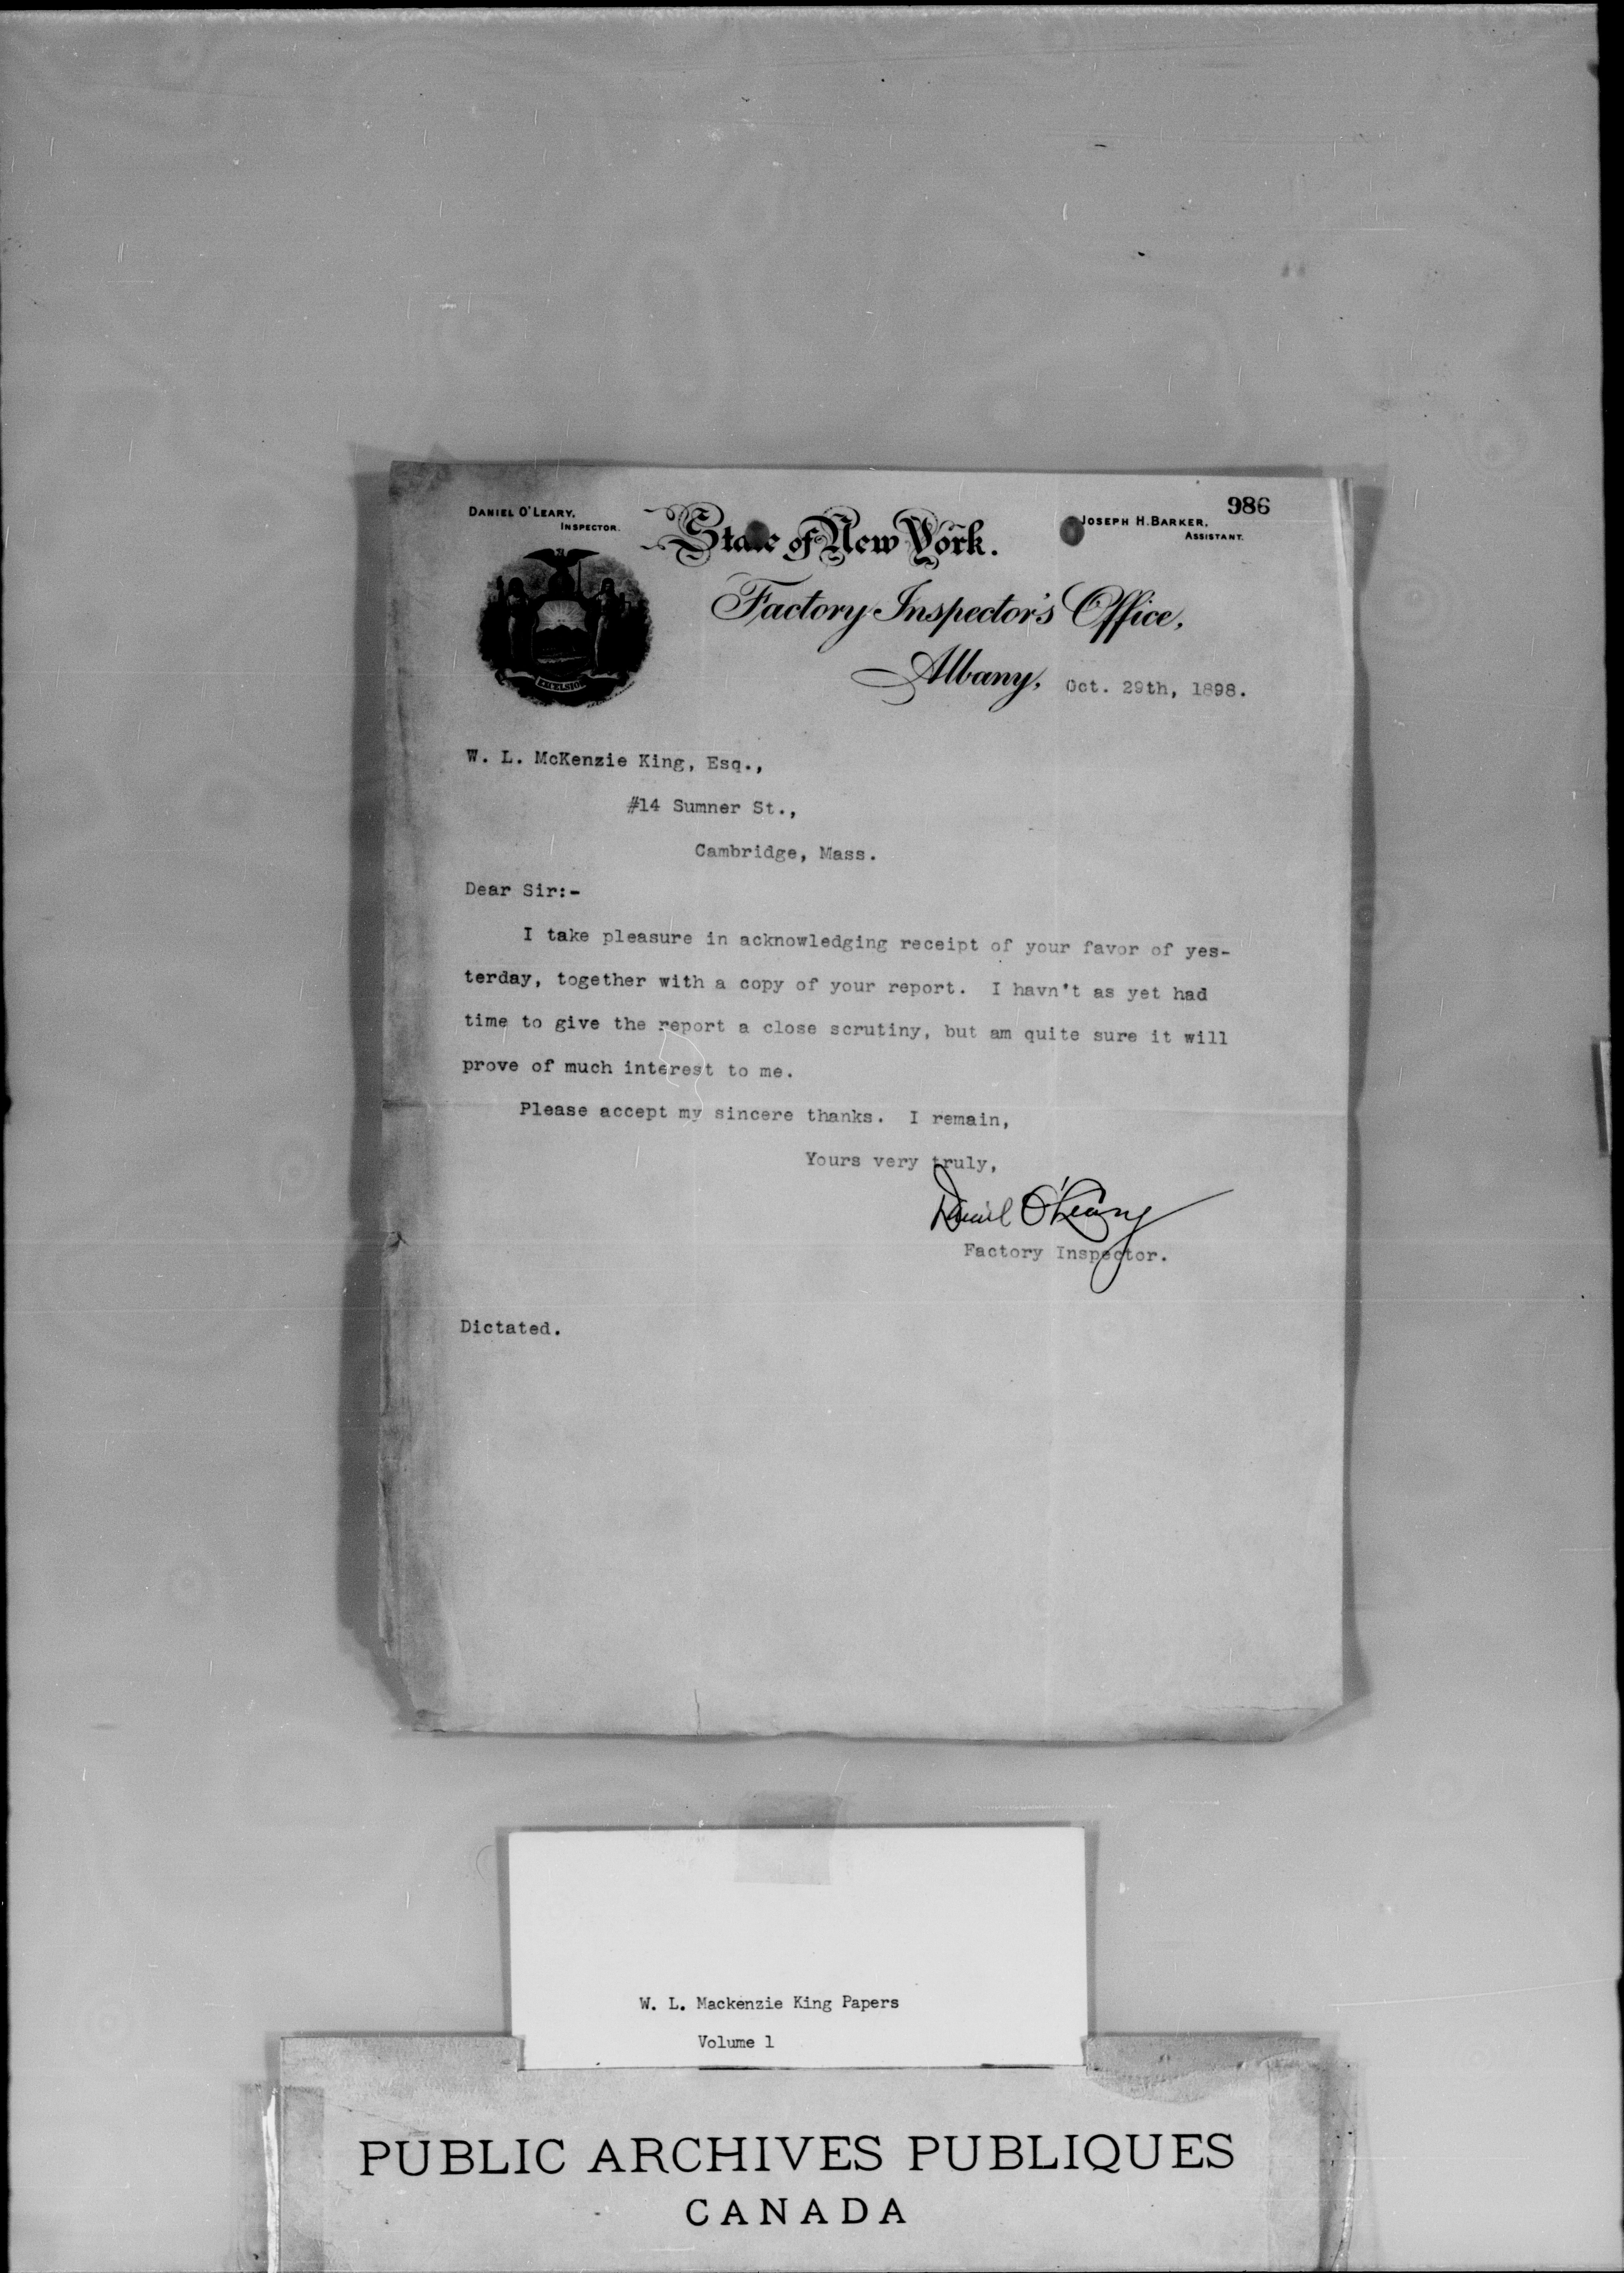 986
DANIEL O'LEARY,
INSPECTOR.
State of New York.
JOSEPH H. BARKER,
ASSISTANT.
Factory Inspector's Office,
EXCELSIOR
Albany, Oct. 29th, 1898.
W. L. McKenzie King, Esq.,
#14 Sumner St.,
Cambridge, Mass.
Dear Sir:-
I take pleasure in acknowledging receipt of your favor of yes-
terday, together with a copy of your report. I havn't as yet had
time to give the report a close scrutiny, but am quite sure it will
prove of much interest to me.
Please accept my sincere thanks. I remain,
Yours very truly,
Daniel O'Leary
Factory Inspector.
Dictated.
W. L. Mackenzie King Papers
Volume 1
PUBLIC ARCHIVES PUBLIQUES
CANADA